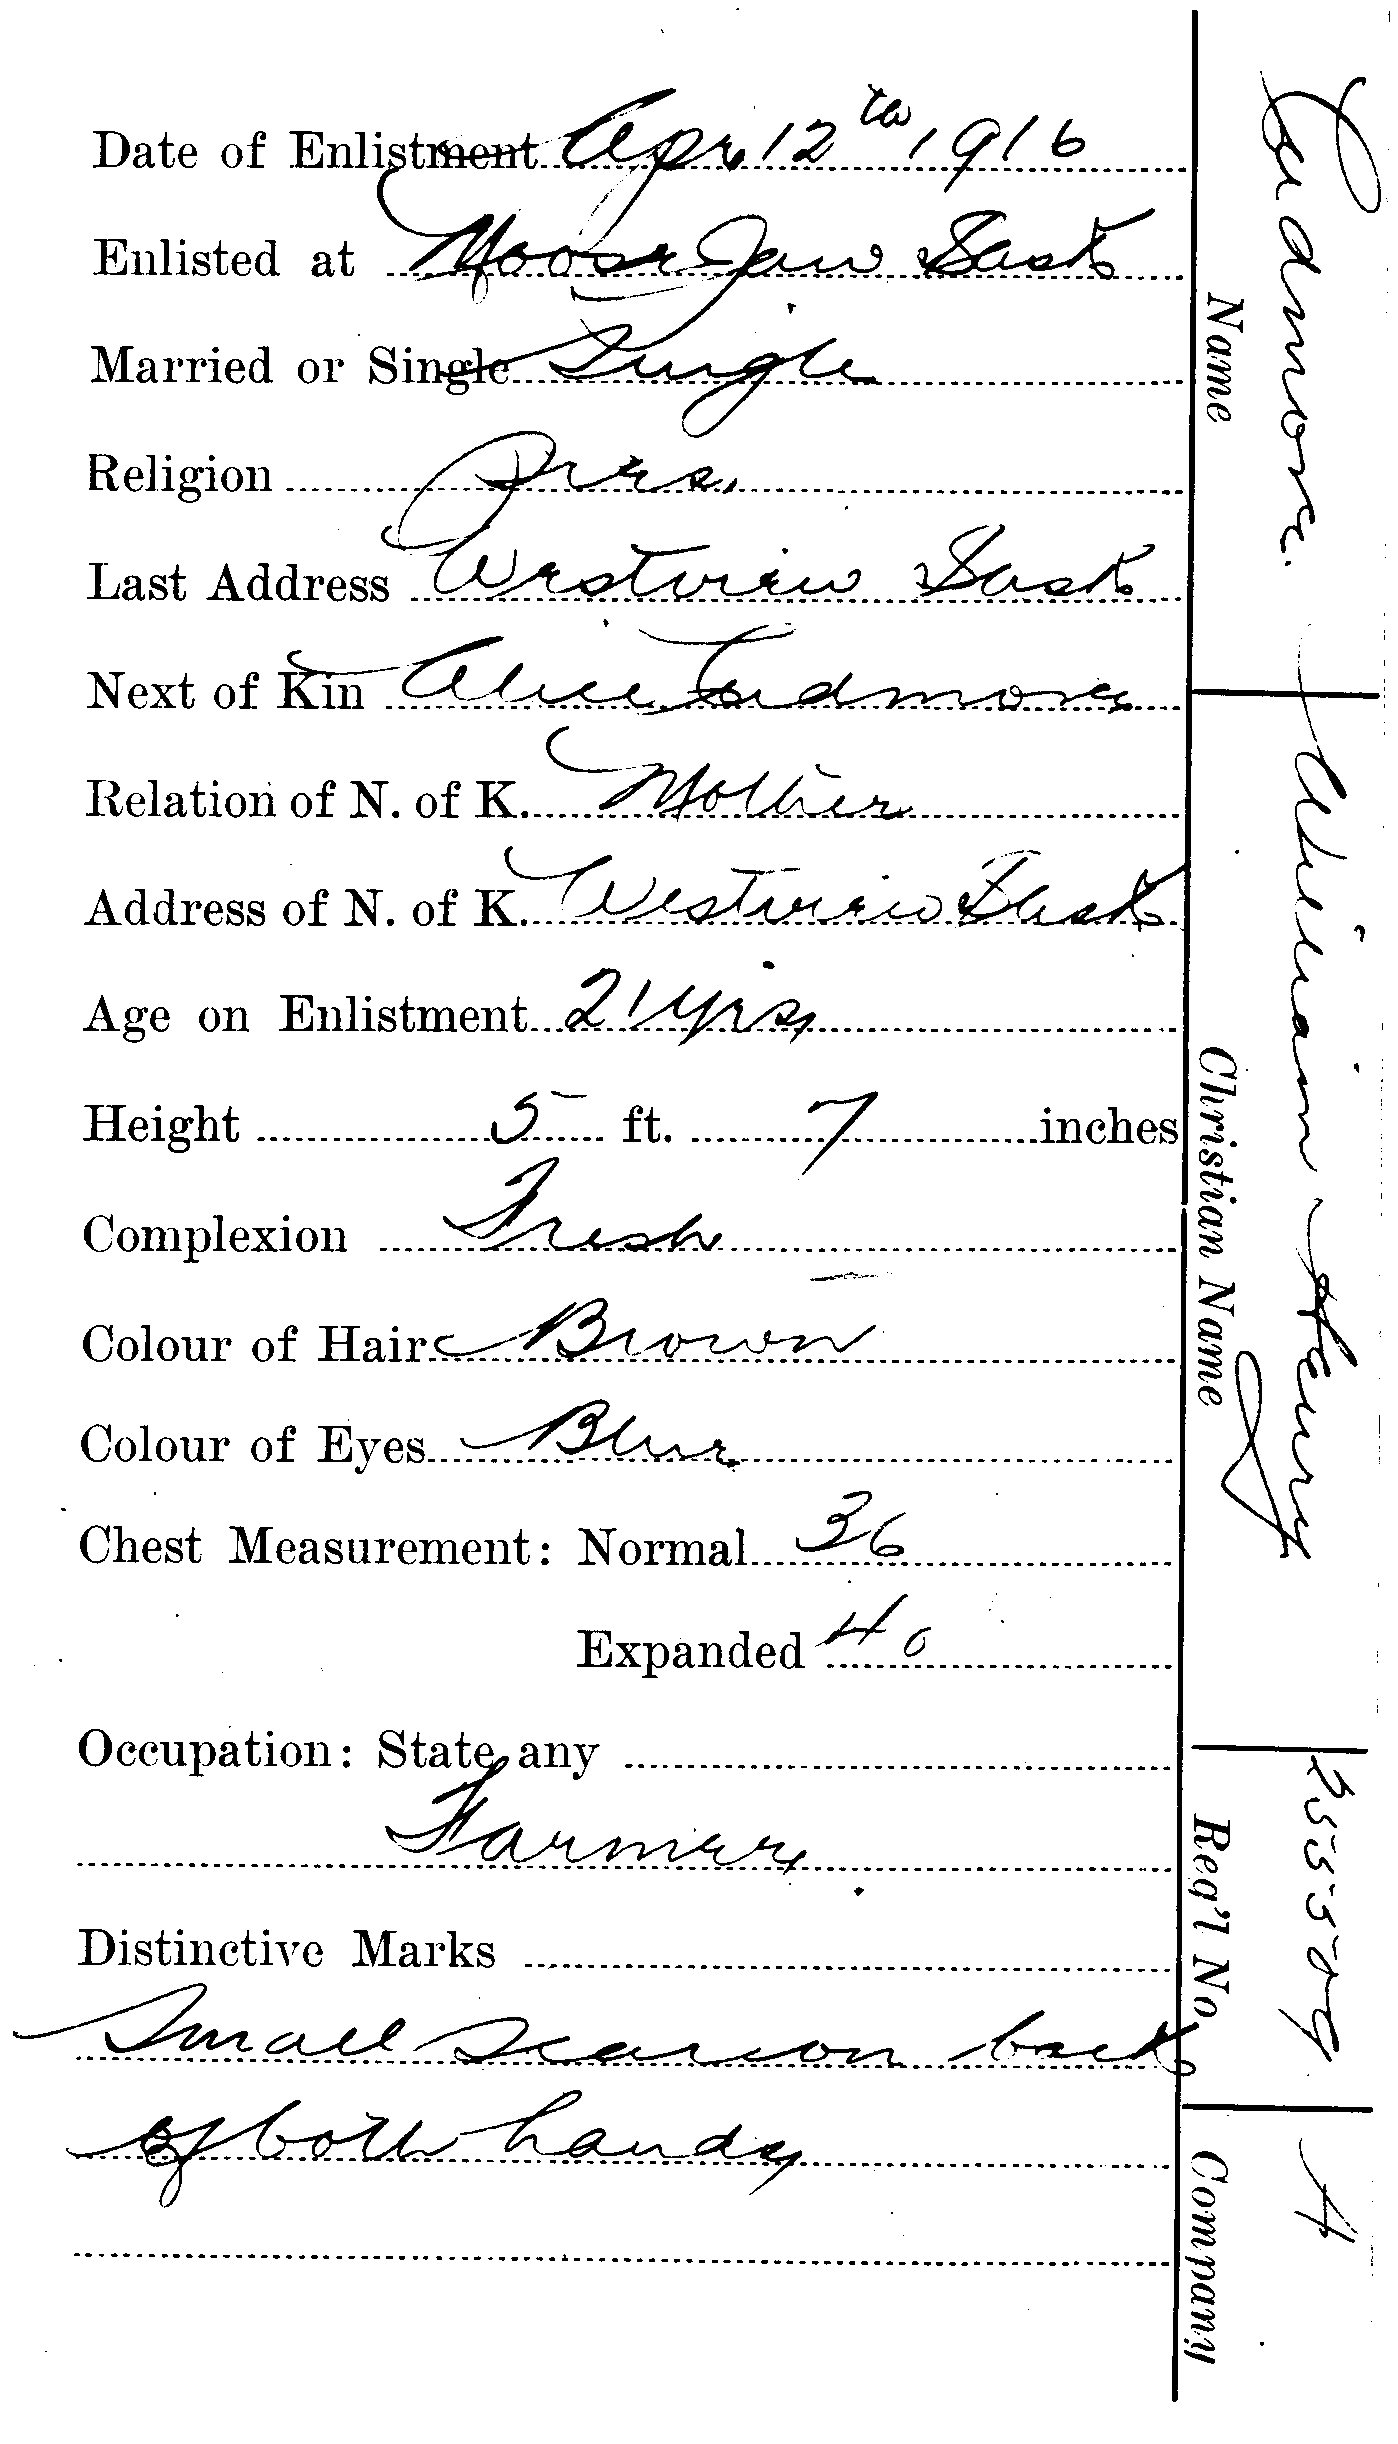 Date of Enlistment Apr 12th 1916
Enlisted at Moose Jaw Sask
Married or Single Single
Religion Pres.
Last Address Westview Sask
Next of Kin Alice Cudmore
Relation of N. of K. Mother
Address of N. of K. Westview Sask
Age on Enlistment 21 yrs
Height 5 ft. 7 inches
Complexion Fresh
Colour of Hair Brown
Colour of Eyes Blue
Chest Measurement: Normal 36
Expanded 40
Occupation: State any
Farmer
Distinctive Marks
Small scar on back
of both hands
Cudmore. William Henry 255509 A
Name Christian Name Reg'l No. Company